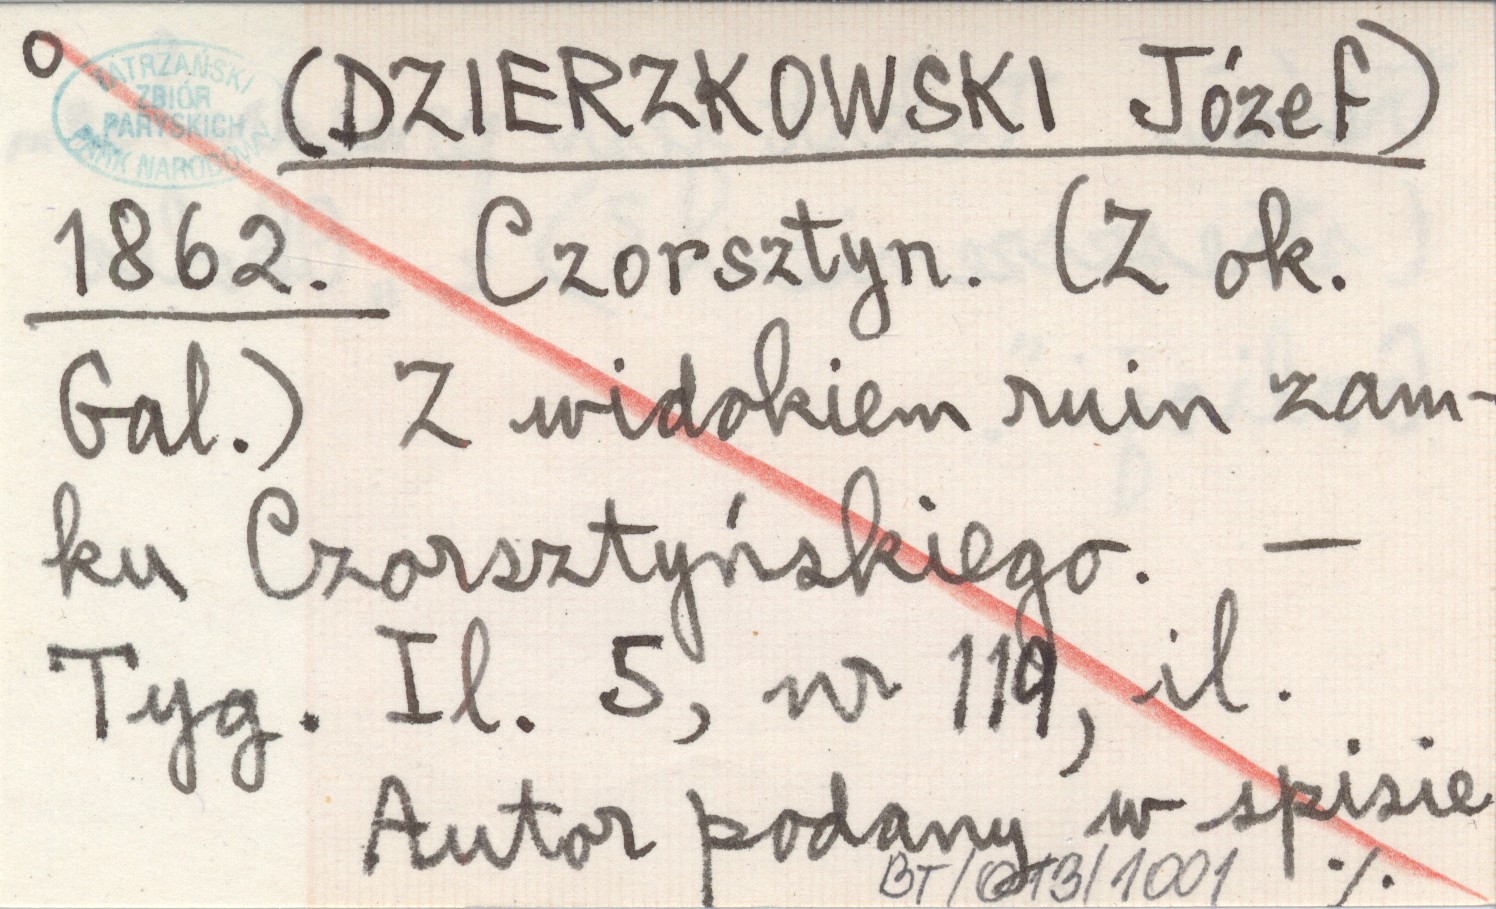 o
TATRZAŃSKI
ZBIÓR
PARYSKICH
PARK NARODOWY
(DZIERZKOWSKI Józef)
1862. Czorsztyn. (Z ok.
Gal.) Z widokiem ruin zam-
ku Czorsztyńskiego. —
Tyg. Il. 5, nr 119, il.
Autor podany w spisie
BT/013/1001 ./.